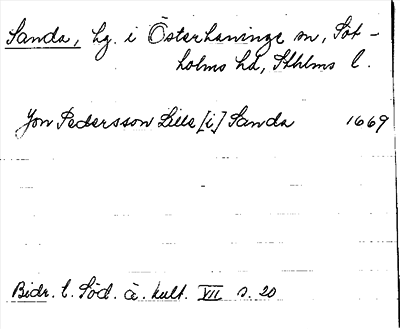 Sanda, hg. i Österhaninge sn, Sot-
holms hd, Sthlms l.
Jon Pedersson Lille [i] Sanda 1669
Bidr. t. Söd. ä. kult. VII s. 20